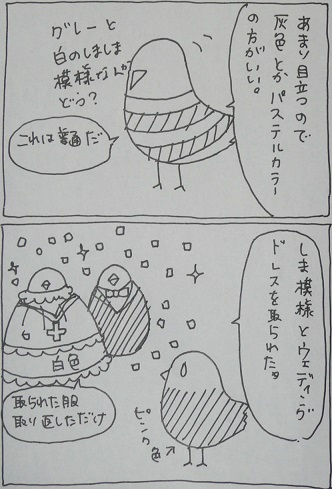 あまり目立つので
灰色とかパステルカラー
の方がいい。
グレーと
白のしましま
模様なんか
どう?
これは普通だ
しま模様とウェディング
ドレスを取られたɘ
白色
取られた服
取り返しただけ
ピンク色